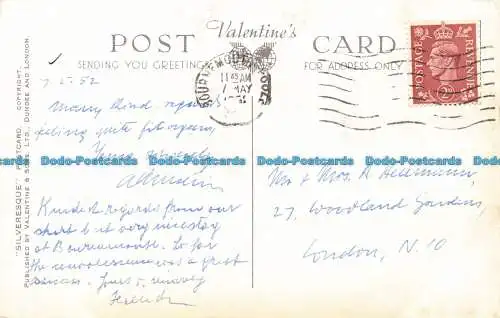 Valentine's
POST CARD
SENDING YOU GREETINGS
FOR ADDRESS ONLY
"SILVERESQUE" POSTCARD. COPYRIGHT.
PUBLISHED BY VALENTINE & SONS, LTD., DUNDEE AND LONDON.
BOURNEMOUTH
11 45 AM
7 MAY
POSTAGE
REVENUE
7.5.52
Many kind regards
feeling quite
Yours sincerely
Kindest regards from our
short but very nice stay
at Bournemouth. So far
the convalescence was a great
success. Yours sincerely
Mr & Mrs. R.
27, Woodland Gardens,
London, N. 10
Dodo-Postcards.com Dodo-Postcards.com Dodo-Postcards.com Dodo-Postcards.com